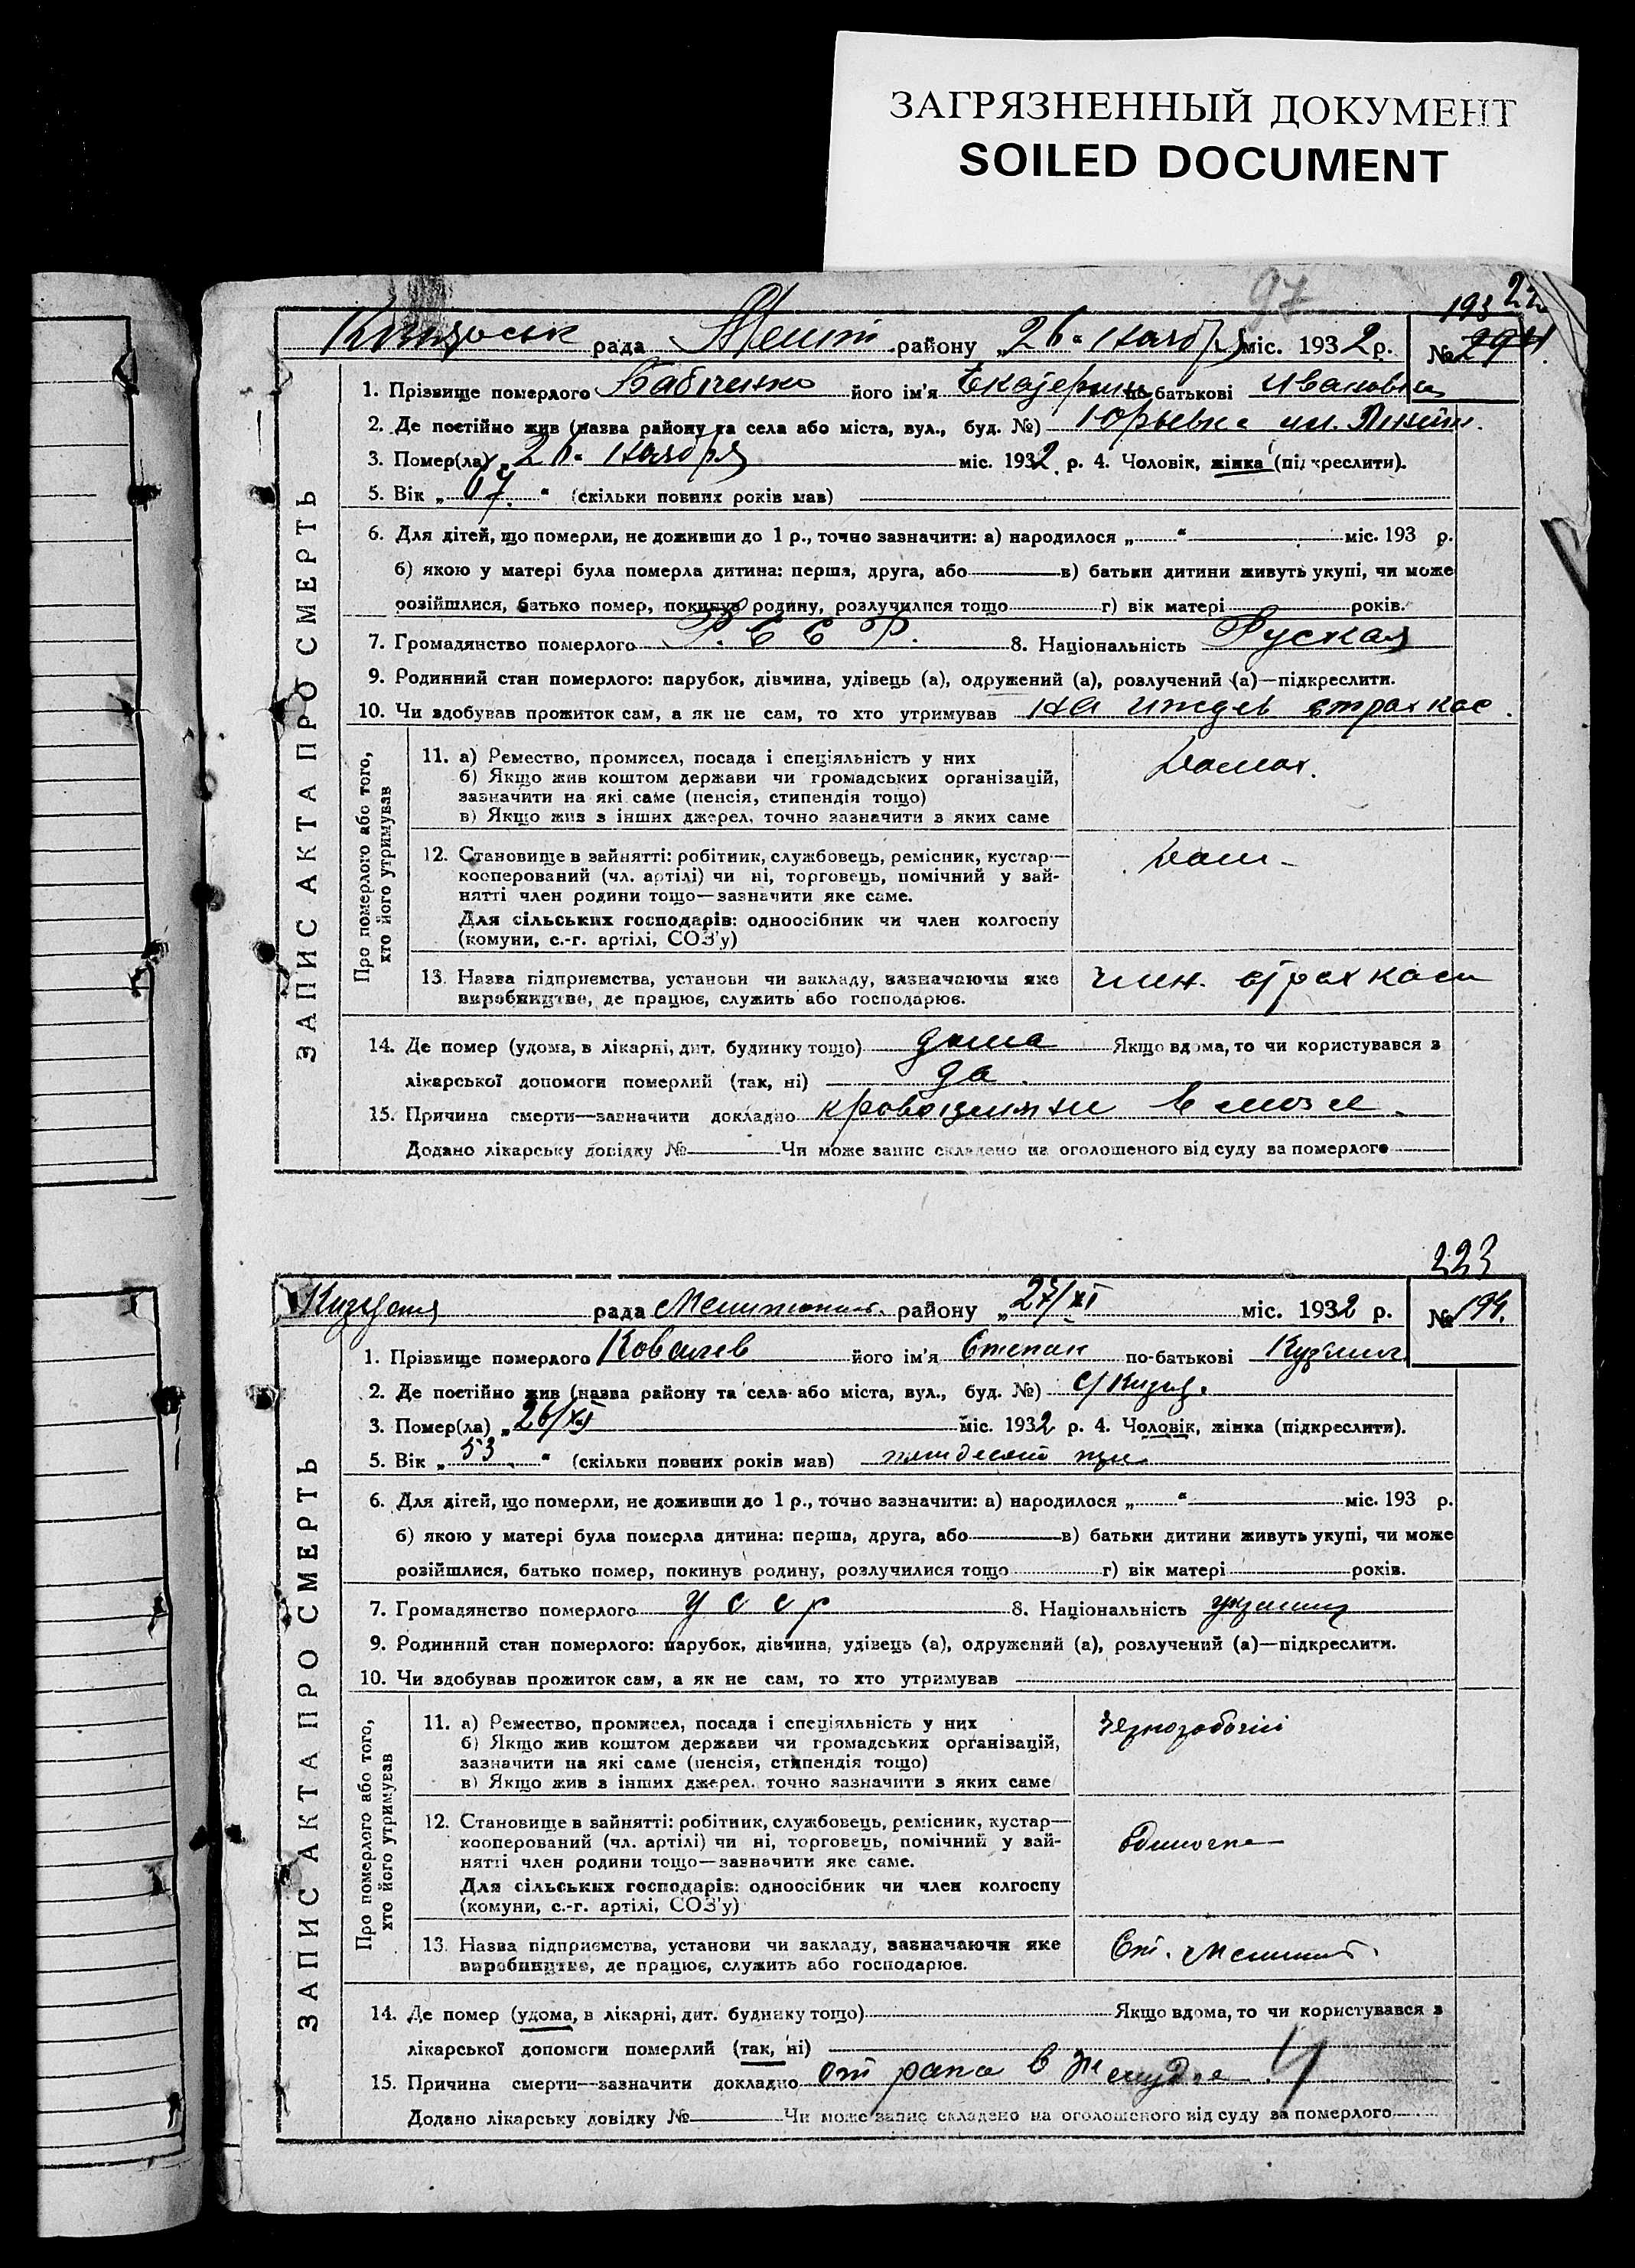 ЗАГРЯЗНЕННЫЙ ДОКУМЕНТ
SOILED DOCUMENT
97
193 22
рада Меліт. району „26“ Ноября міс. 1932 р. №
1. Прізвище померлого Бабченко його ім'я Екатерина по-батькові Ивановна
2. Де постійно жив (назва району та села або міста, вул., буд. №) Юрьевка ул.
3. Помер(ла) „26“ Ноября міс. 1932 р. 4. Чоловік, жінка (підкреслити).
5. Вік „67“ (скільки повних років мав)
6. Для дітей, що померли, не доживши до 1 р., точно зазначити: а) народилося „ “ міс. 193 р.
б) якою у матері була померла дитина: перша, друга, або в) батьки дитини живуть укупі, чи може
розійшлися, батько помер, покинув родину, розлучилися тощо г) вік матері років.
7. Громадянство померлого Р. С С Р. 8. Національність Руская
9. Родинний стан померлого: парубок, дівчина, удівець (а), одружений (а), розлучений (а)—підкреслити.
10. Чи здобував прожиток сам, а як не сам, то хто утримував на иждев страхкас.
ЗАПИС АКТА ПРО СМЕРТЬ
Про померлого або того, хто його утримував
11. а) Ремество, промисел, посада і спеціяльність у них
б) Якщо жив коштом держави чи громадських організацій,
зазначити на які саме (пенсія, стипендія тощо)
в) Якщо жив з інших джерел, точно зазначити з яких саме
домох.
12. Становище в зайнятті: робітник, службовець, ремісник, кустар—
кооперований (чл. артілі) чи ні, торговець, помічний у зай-
нятті член родини тощо—зазначити яке саме.
Для сільських господарів: одноосібник чи член колгоспу
(комуни, с.-г. артілі, СОЗ'у)
дом-
13. Назва підприємства, установи чи закладу, зазначаючи яке
виробництво, де працює, служить або господарює.
член. страхкаси
14. Де помер (удома, в лікарні, дит. будинку тощо) дома Якщо вдома, то чи користувався з
лікарської допомоги померлий (так, ні) да.
15. Причина смерти—зазначити докладно в мозг.
Додано лікарську довідку № Чи може запис складено на оголошеного від суду за померлого
223
рада району „27/XI міс. 1932 р. № 194.
1. Прізвище померлого Ковалев його ім'я Степан по-батькові Кузьмич
2. Де постійно жив (назва району та села або міста, вул., буд. №) с/ Кизы.
3. Помер(ла) „26/XI міс. 1932 р. 4. Чоловік, жінка (підкреслити).
5. Вік „53“ (скільки повних років мав) пятдесят три
6. Для дітей, що померли, не доживши до 1 р., точно зазначити: а) народилося „ “ міс. 193 р.
б) якою у матері була померла дитина: перша, друга, або в) батьки дитини живуть укупі, чи може
розійшлися, батько помер, покинув родину, розлучилися тощо г) вік матері років.
7. Громадянство померлого У С С Р 8. Національність
9. Родинний стан померлого: парубок, дівчина, удівець (а), одружений (а), розлучений (а)—підкреслити.
10. Чи здобував прожиток сам, а як не сам, то хто утримував
ЗАПИС АКТА ПРО СМЕРТЬ
Про померлого або того, хто його утримував
11. а) Ремество, промисел, посада і спеціяльність у них
б) Якщо жив коштом держави чи громадських організацій,
зазначити на які саме (пенсія, стипендія тощо)
в) Якщо жив з інших джерел, точно зазначити з яких саме
чернорабочий
12. Становище в зайнятті: робітник, службовець, ремісник, кустар—
кооперований (чл. артілі) чи ні, торговець, помічний у зай-
нятті член родини тощо—зазначити яке саме.
Для сільських господарів: одноосібник чи член колгоспу
(комуни, с.-г. артілі, СОЗ'у)
13. Назва підприємства, установи чи закладу, зазначаючи яке
виробництво, де працює, служить або господарює.
Ст. Мелитоп.
14. Де помер (удома, в лікарні, дит. будинку тощо) Якщо вдома, то чи користувався з
лікарської допомоги померлий (так, ні)
15. Причина смерти—зазначити докладно от рака в желудке
Додано лікарську довідку № Чи може запис складено на оголошеного від суду за померлого